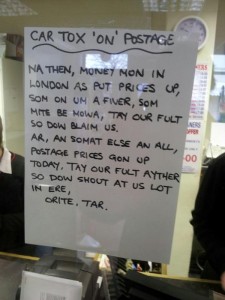 CAR TOX 'ON' POSTAGE
NA THEN, MONEY MON IN
LONDON AS PUT PRICES UP,
SOM ON UM A FIVER, SOM
MITE BE MOWA, TAY OUR FULT
SO DOW BLAIM US.
AR, AN SOMAT ELSE AN ALL,
POSTAGE PRICES GON UP
TODAY. TAY OUR FULT AYTHER
SO DOW SHOUT AT US LOT
IN ERE,
ORITE. TAR.